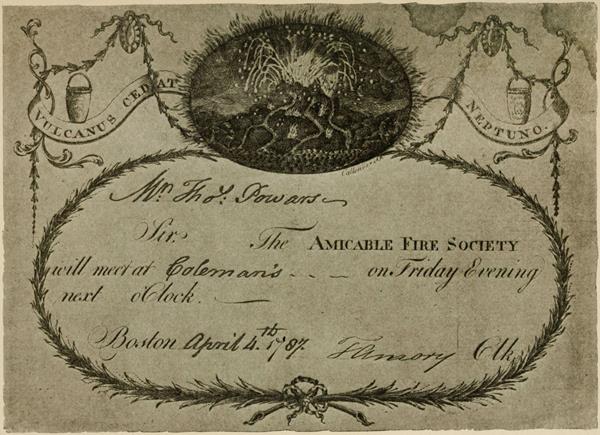 VULCANUS CEDAT
NEPTUNO.
Mr. Thos. Powars
Sir. The AMICABLE FIRE SOCIETY
will meet at Coleman's - - - on Friday Evening
next o'Clock.
Boston April 4.th 1787. Amory Clk